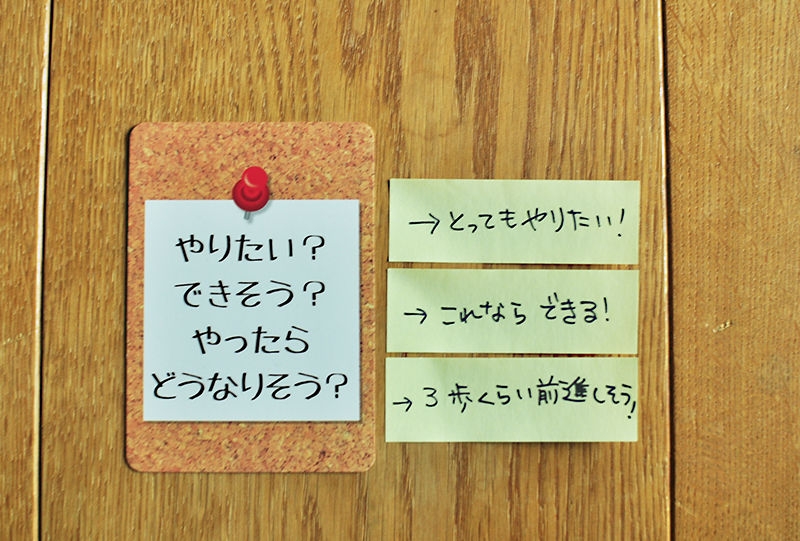 やりたい?
できそう?
やったら
どうなりそう?
→とってもやりたい!
→これなら できる!
→3歩くらい前進しそう!